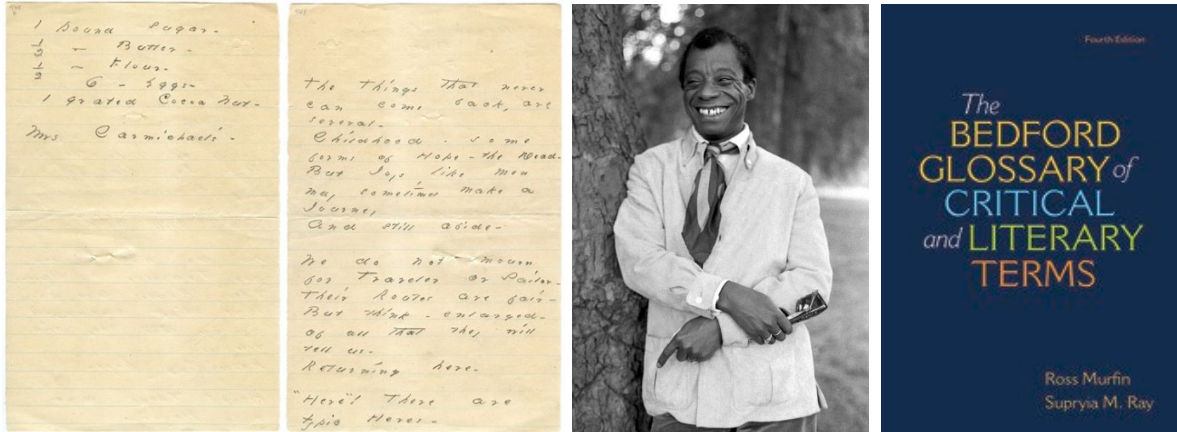 1 pound Sugar-
1/2 - Butter-
1/2 - Flour-
6 - Eggs-
1 grated Cocoa Nut-
Mrs Carmichael's-
The things that never
can come back, are
several-
Childhood - some
forms of Hope - the Dead-
But Joys like men
may sometimes make a
Journey
And still abide-
We do not mourn
for Traveler or Sailor-
Their Routes are fair-
But think - enlarged-
of all that they will
tell us-
Returning here-
"Here"! There are
typic Heres-
Fourth Edition
The
BEDFORD
GLOSSARY of
CRITICAL
and LITERARY
TERMS
Ross Murfin
Supryia M. Ray